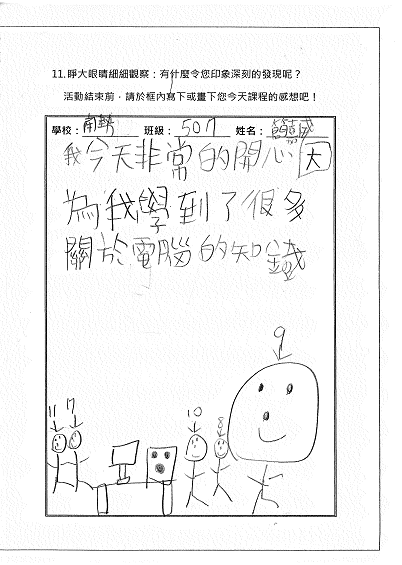 11.睜大眼睛細細觀察：有什麼令您印象深刻的發現呢？
活動結束前，請於框內寫下或畫下您今天課程的感想吧！
學校：南勢 班級：507 姓名：簡
我今天非常的開心因
為我學到了很多
關於電腦的知識
9
11 7 10 8